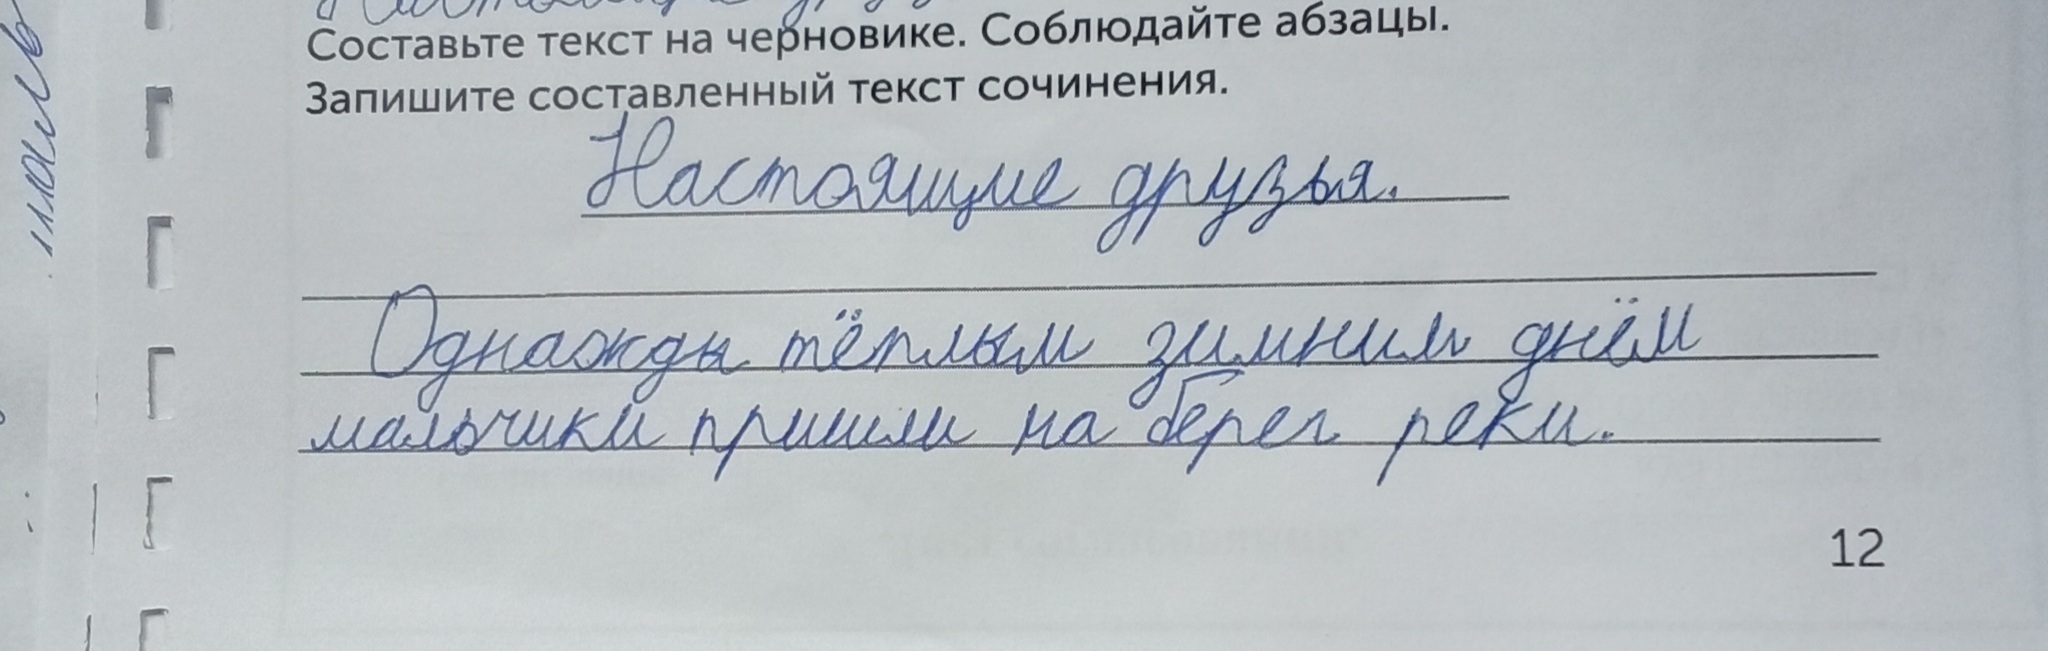 Составьте текст на черновике. Соблюдайте абзацы.
Запишите составленный текст сочинения.
Настоящие друзья.
Однажды тёплым зимним днём
мальчики пришли на берег реки.
12